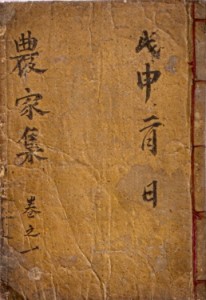 戊申 二月 日
農家集 卷之一